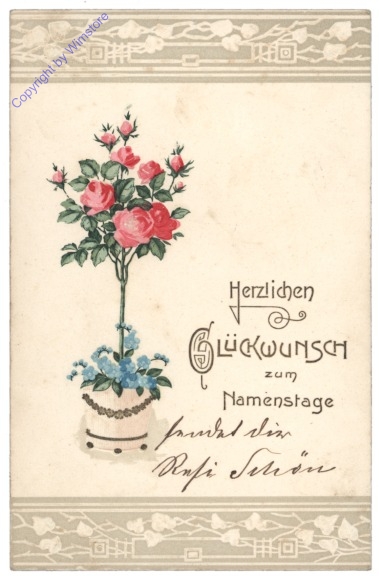 Copyright by Wimstore
Herzlichen
Glückwunsch
zum
Namenstage
sendet dir
Resi Schön